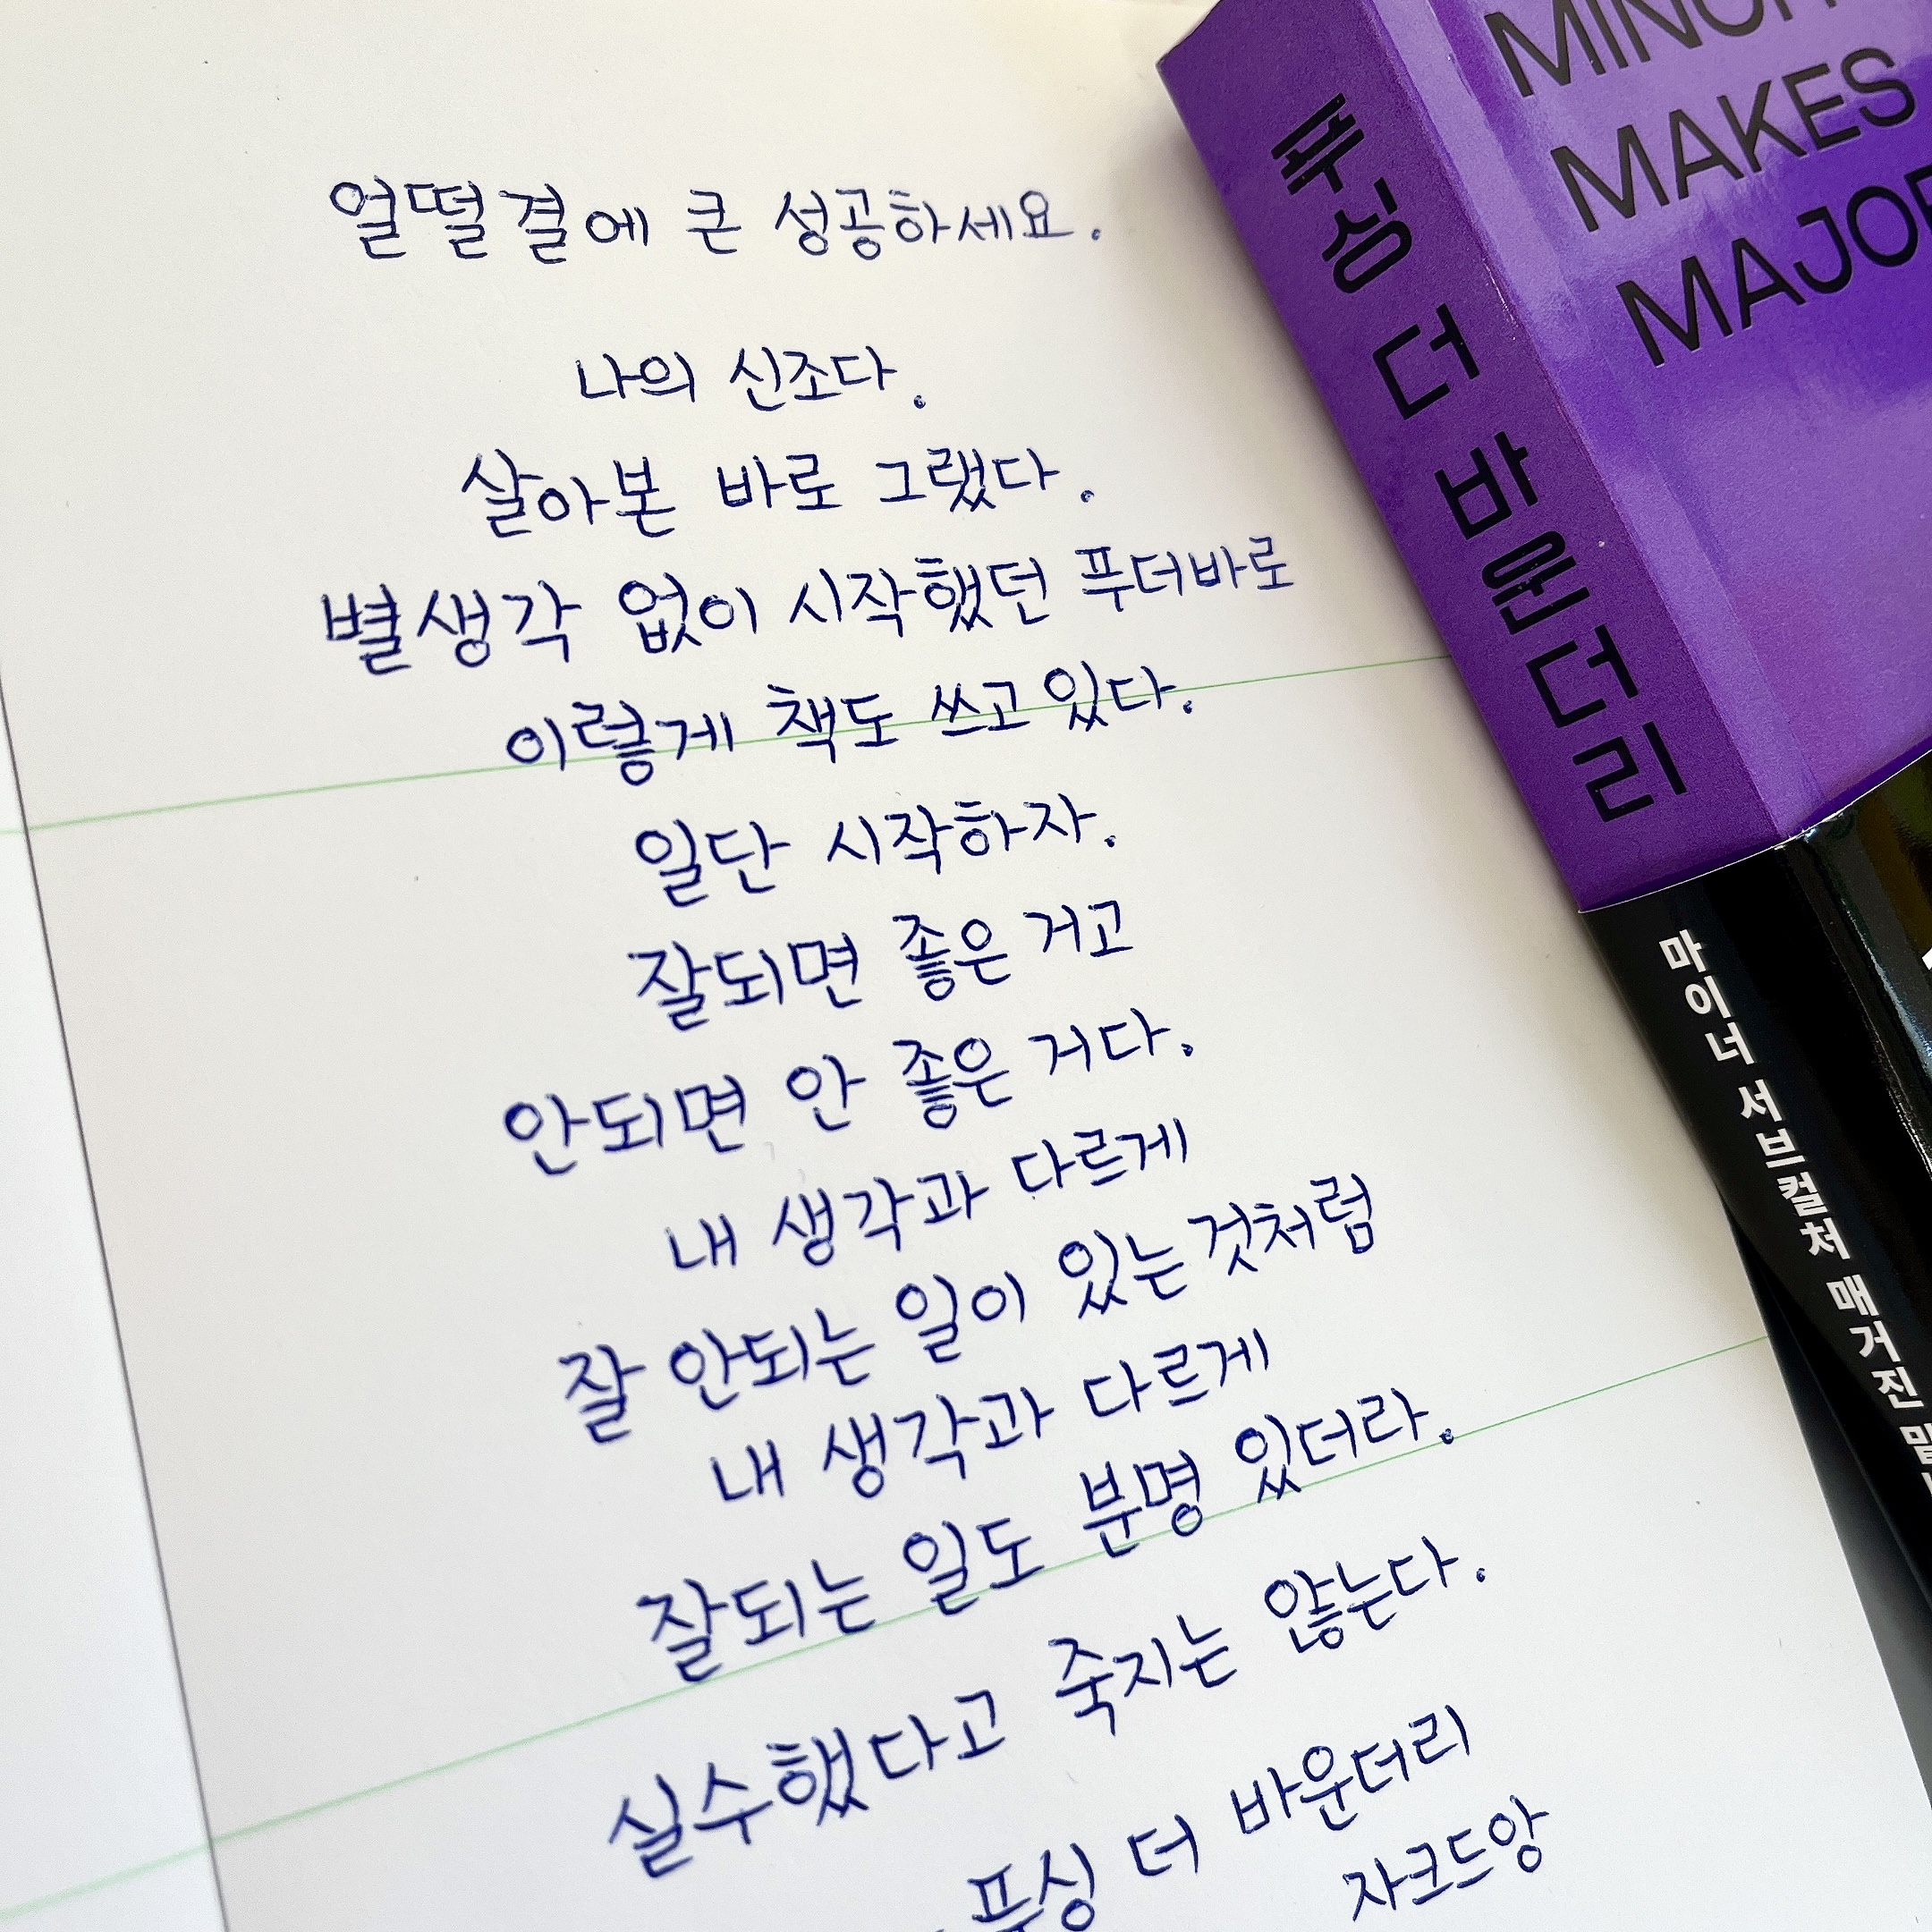 얼떨결에 큰 성공하세요.
나의 신조다.
살아본 바로 그랬다.
별생각 없이 시작했던 푸더바로
이렇게 책도 쓰고 있다.
일단 시작하자.
잘되면 좋은 거고
안되면 안 좋은 거다.
내 생각과 다르게
잘 안되는 일이 있는 것처럼
내 생각과 다르게
잘되는 일도 분명 있더라.
실수했다고 죽지는 않는다.
푸싱 더 바운더리
자크드앙
푸싱 더 바운더리
MAKES
마이너 서브컬처 매거진